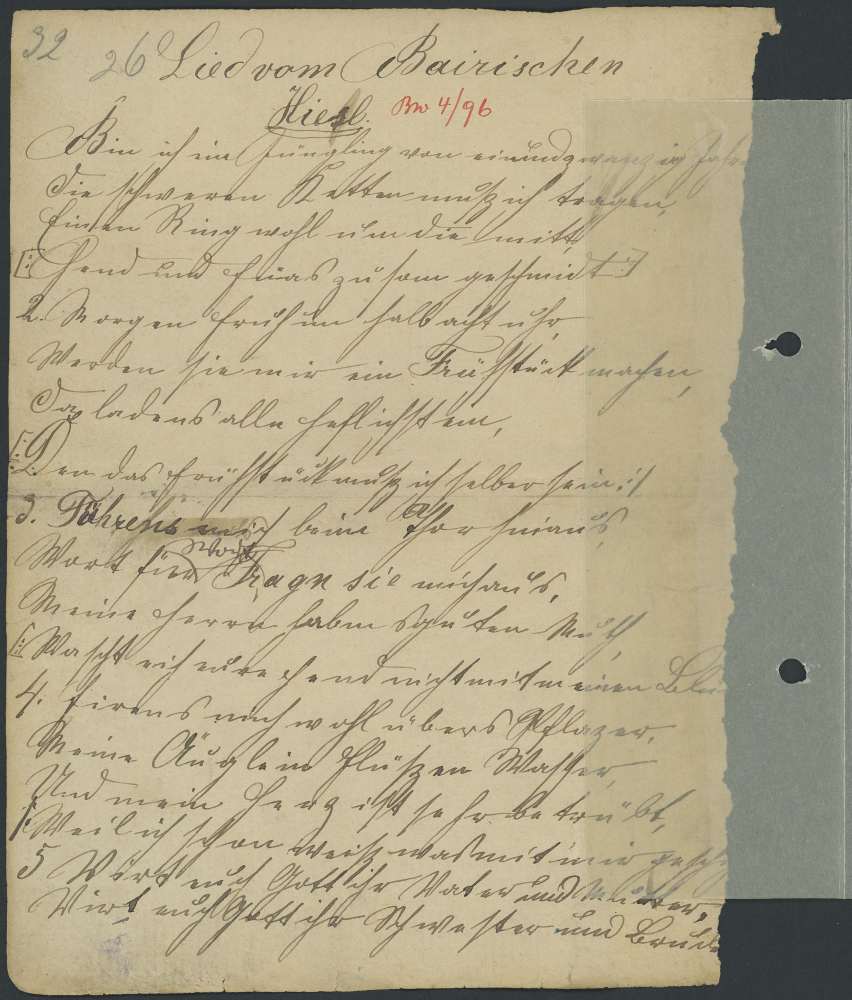 32 26 Lied vom Bairischen
Hiesl. Bw 4/96
Bin ich ein Jüngling von einundzwanzig Jahre
Die schweren Ketten muß ich tragen,
Einen Ring wohl um die mitt,
[: Hend und Füas zusam geschmidt :]
2. Morgen Fruh um halb acht uhr,
Werden sie mir ein Frühstück machen,
Da ladens alle heflichst ein,
[: Den das Frühstück muß ich selber sein :]
3. Führens mich beim Thor hinaus,
Wort für Wort Tragn sie mich aus,
Meine Herrn habens guten Muth,
[: Wascht eich eure Hend nicht mit meinen Blu
4. Firens mich wohl übers Pflazer,
Meine Äuglein Flüßen Wasser,
Und mein Herz ist sehr betrübt,
[: Weil ich schon weiß was mit mir gesch
5 Wirt euch Gott ihr Vater und Mutter,
Wirt euch Gott ihr Schwester und Brude